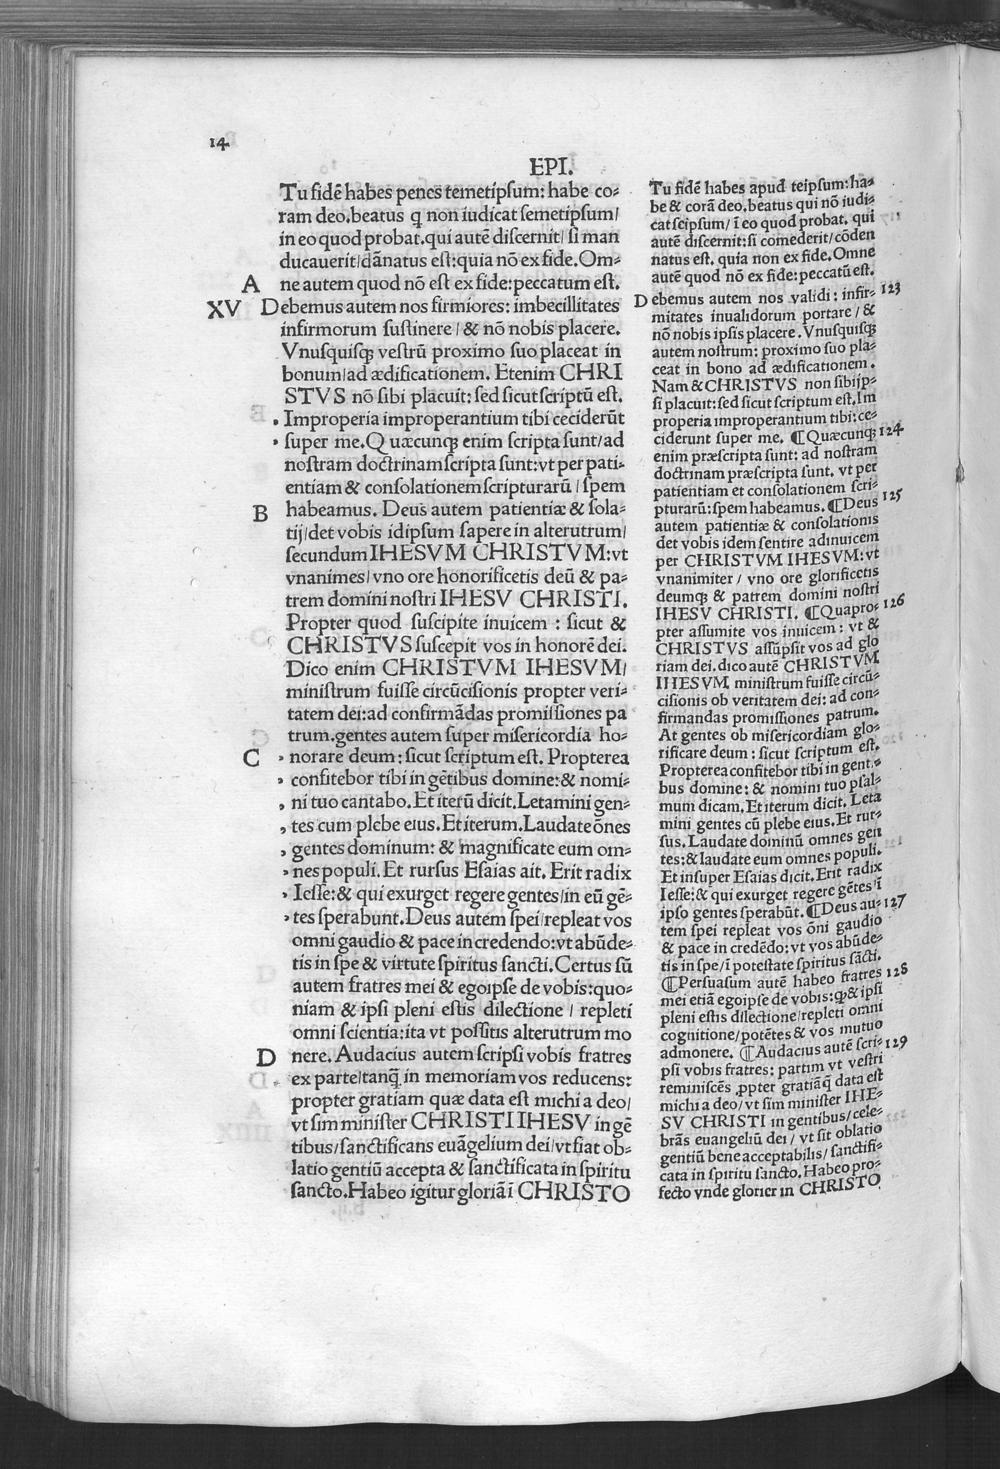 14
EPI.
Tu fidē habes penes temetipsum: habe co-
ram deo. beatus q non iudicat semetipsum/
in eo quod probat. qui autē discernit/ si man
ducauerit/ dānatus est: quia nō ex fide. Om-
A ne autem quod nō est ex fide: peccatum est.
XV Debemus autem nos firmiores: imbecillitates
infirmorum sustinere/ & nō nobis placere.
Vnusquisq; vestrū proximo suo placeat in
bonum/ ad ædificationem. Etenim CHRI
STVS nō sibi placuit: sed sicut scriptū est.
Improperia improperantium tibi ceciderūt
super me. Quæcunq; enim scripta sunt/ ad
nostram doctrinam scripta sunt: vt per pati-
entiam & consolationem scripturarū/ spem
B habeamus. Deus autem patientiæ & sola-
tij/ det vobis idipsum sapere in alterutrum/
secundum IHESVM CHRISTVM: vt
vnanimes/ vno ore honorificetis deū & pa-
trem domini nostri IHESV CHRISTI.
Propter quod suscipite inuicem : sicut &
CHRISTVS suscepit vos in honorē dei.
Dico enim CHRISTVM IHESVM/
ministrum fuisse circūcisionis propter veri-
tatem dei: ad confirmādas promissiones pa
trum. gentes autem super misericordia ho-
C norare deum: sicut scriptum est. Propterea
confitebor tibi in gētibus domine: & nomi-
ni tuo cantabo. Et iterū dicit. Letamini gen-
tes cum plebe eius. Et iterum. Laudate ōnes
gentes dominum: & magnificate eum om-
nes populi. Et rursus Esaias ait. Erit radix
Iesse: & qui exurget regere gentes/ in eū gē-
tes sperabunt. Deus autem spei/ repleat vos
omni gaudio & pace in credendo: vt abūde-
tis in spe & virtute spiritus sancti. Certus sū
autem fratres mei & ego ipse de vobis: quo-
niam & ipsi pleni estis dilectione/ repleti
omni scientia: ita vt possitis alterutrum mo
D nere. Audacius autem scripsi vobis fratres
ex parte/ tanq̄ in memoriam vos reducens:
propter gratiam quæ data est michi a deo/
vt sim minister CHRISTI IHESV in gē
tibus/ sanctificans euāgelium dei/ vt fiat ob-
latio gentiū accepta & sanctificata in spiritu
sancto. Habeo igitur gloriā ī CHRISTO
Tu fidē habes apud teipsum: ha-
be & corā deo. beatus qui nō iudi-
cat seipsum/ ī eo quod probat. qui
autē discernit: si comederit/ cōden
natus est. quia non ex fide. Omne
autē quod nō ex fide: peccatū est.
Debemus autem nos validi : infir- 123
mitates inualidorum portare/ &
nō nobis ipsis placere. Vnusquisq;
autem nostrum: proximo suo pla-
ceat in bono ad ædificationem.
Nam & CHRISTVS non sibi ip-
si placuit: sed sicut scriptum est. Im
properia improperantium tibi: ce-
ciderunt super me. ¶Quæcunq; 124
enim præscripta sunt: ad nostram
doctrinam præscripta sunt. vt per
patientiam et consolationem scri-
pturarū: spem habeamus. ¶Deus 125
autem patientiæ & consolationis
det vobis idem sentire adinuicem
per CHRISTVM IHESVM: vt
vnanimiter/ vno ore glorificetis
deumq; & patrem domini nostri
IHESV CHRISTI. ¶Quapro- 126
pter assumite vos inuicem: vt &
CHRISTVS assūpsit vos ad glo
riam dei. dico autē CHRISTVM
IHESVM ministrum fuisse circū-
cisionis ob veritatem dei: ad con-
firmandas promissiones patrum.
At gentes ob misericordiam glo-
rificare deum : sicut scriptum est.
Propterea confitebor tibi in gent.
bus domine: & nomini tuo psal-
mum dicam. Et iterum dicit. Leta
mini gentes cū plebe eius. Et rur-
sus. Laudate dominū omnes gen
tes: & laudate eum omnes populi.
Et insuper Esaias dicit. Erit radix
Iesse: & qui exurget regere gētes ī
ipso gentes sperabūt. ¶Deus au- 127
tem spei repleat vos ōni gaudio
& pace in credēdo: vt vos abūde-
tis in spe/ ī potestate spiritus sācti.
¶Persuasum autē habeo fratres 128
mei etiā ego ipse de vobis: q; & ipsi
pleni estis dilectione/ repleti omni
cognitione/ potētes & vos mutuo
admonere. ¶Audacius autē scri- 129
psi vobis fratres: partim vt vestri
reminiscēs ꝓpter gratiā q̄ data est
michi a deo/ vt sim minister IHE-
SV CHRISTI in gentibus/ cele-
brās euangeliū dei/ vt sit oblatio
gentiū bene acceptabilis/ sanctifi-
cata in spiritu sancto. Habeo pro-
fecto vnde glorier in CHRISTO